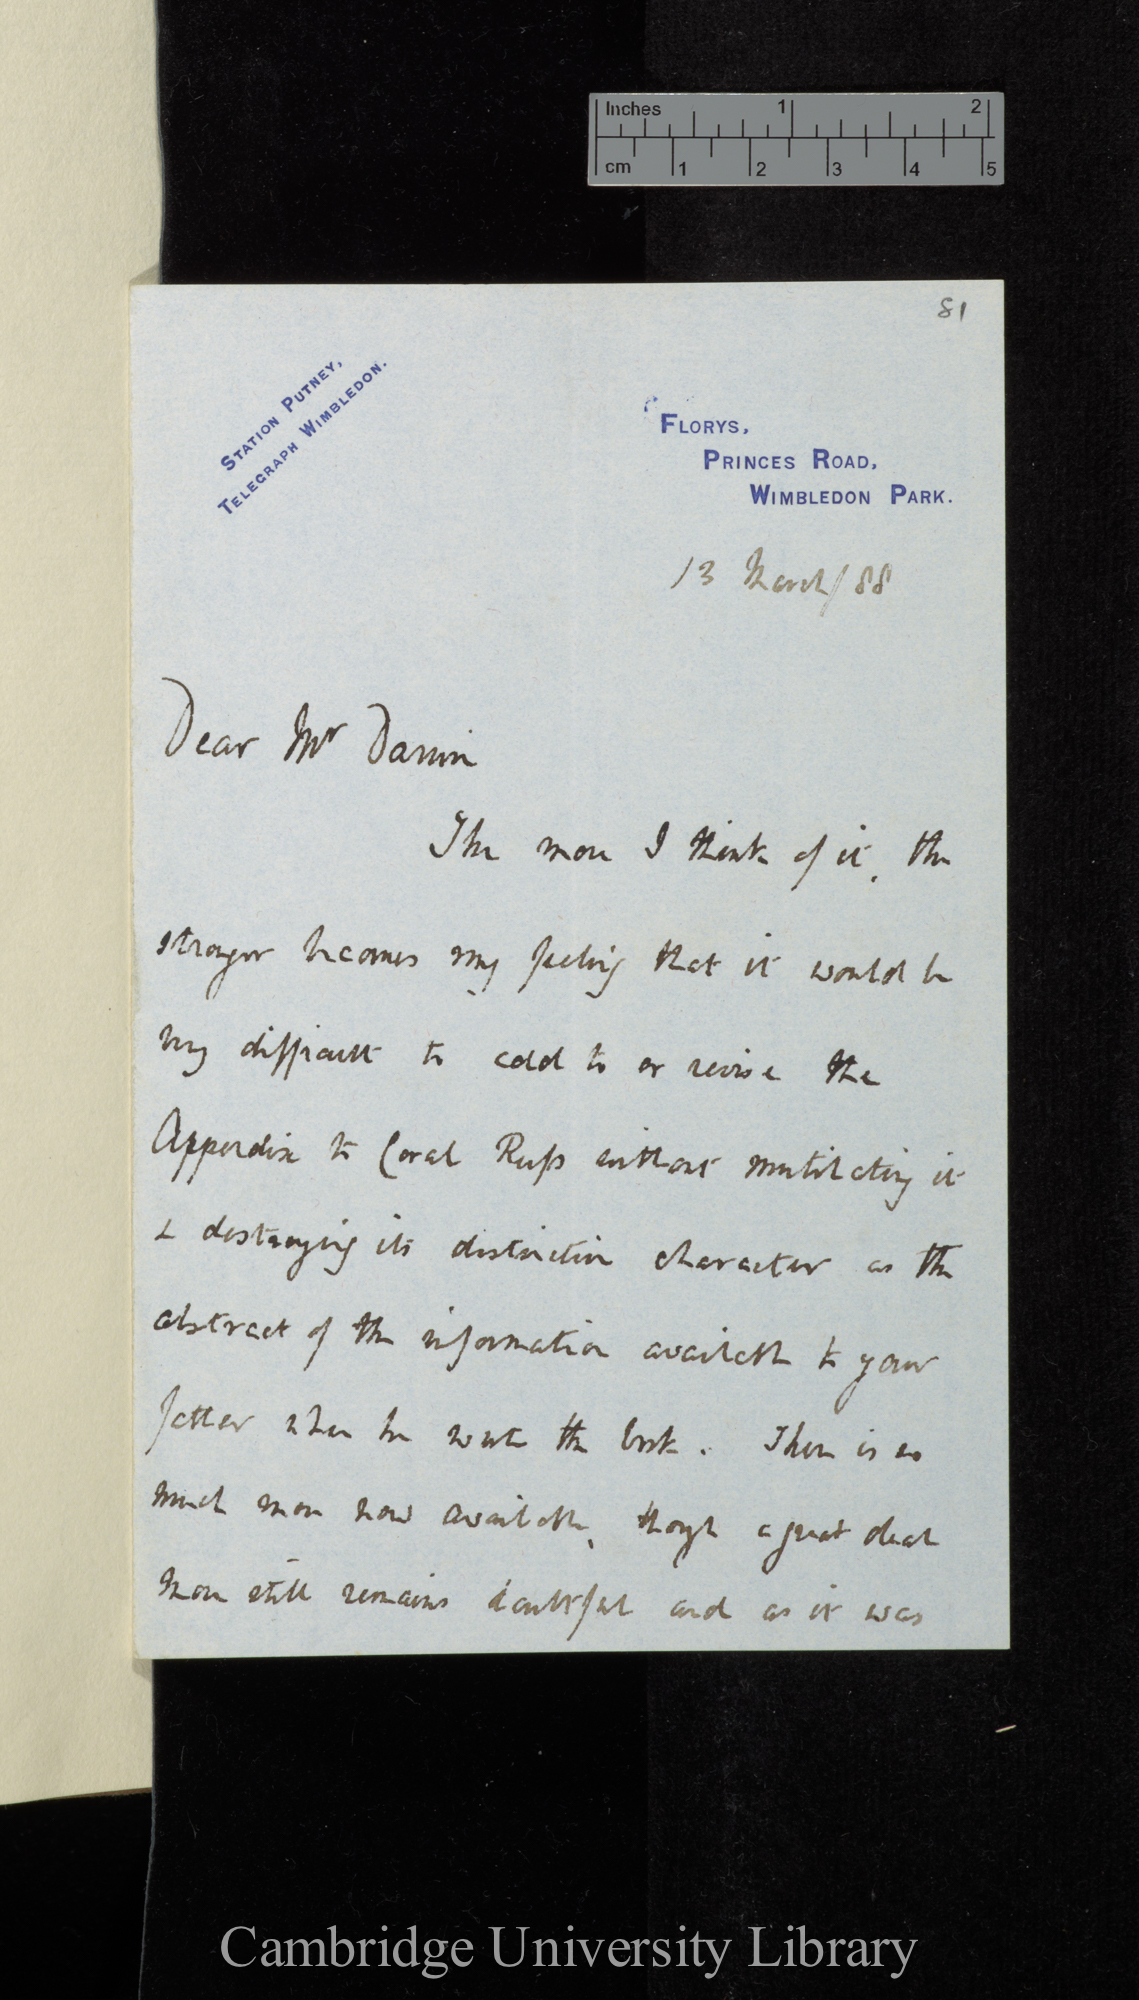 Inches 1 2
cm 1 2 3 4 5
81
STATION PUTNEY,
TELEGRAPH WIMBLEDON.
FLORYS,
PRINCES ROAD,
WIMBLEDON PARK.
13 March/88
Dear Mr Darwin
The more I think of it, the
stronger becomes my feeling that it would be
very difficult to add to or revise the
Appendix to Coral Reefs without mutilating it
& destroying its distinctive character as the
abstract of the information available to your
father when he wrote the book. There is so
much more now available, though a great deal
more still remains doubtful and as it was
Cambridge University Library